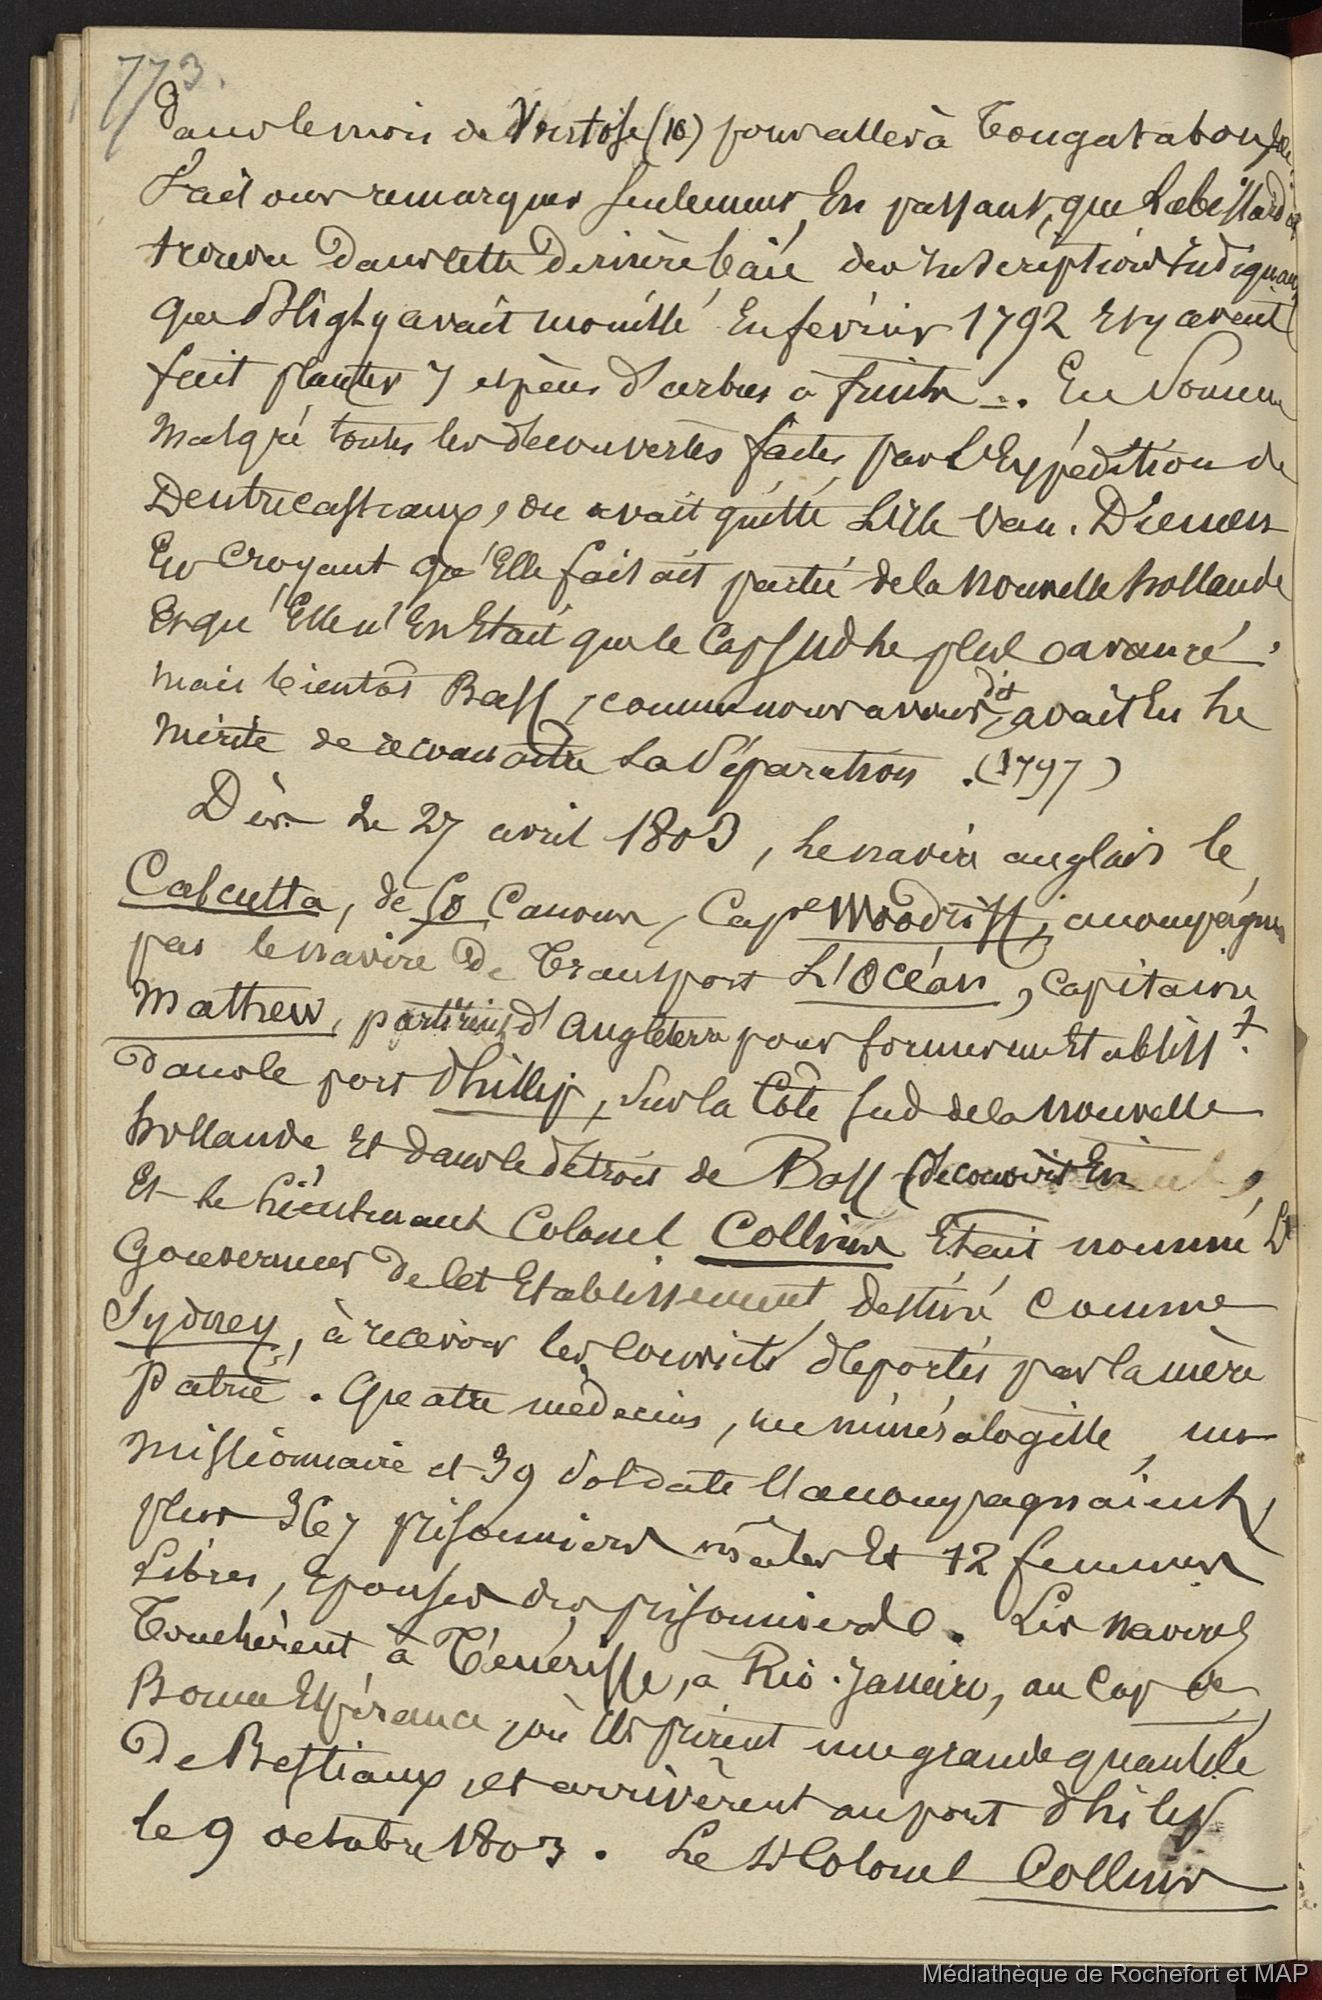 773.
dans le mois de Ventose (10) pour aller à Tongatabou
Fait remarquer seulement, En passant, que Labillard
trouva dans cette dernière baie des inscriptions indiquant
que Bligh y avait mouillé En fevrier 1792 Et y avait
fait planter 7 espèces d'arbres à fruits... En Somme
Malgré toutes les decouvertes faites par L'Expédition de
Dentrecasteaux, on avait quitté L'isle Van. Diemen
En Croyant qu'Elle faisait partie de la Nouvelle hollande
Et qu'Elle n'En Etait que le Cap Sud le plus avancé.
Mais bientôt Bass, comme nous avons dit, avait Eu le
Mérite de reconnaitre La Séparation. (1797)
Dès Le 27 avril 1803, le navire anglais le
Calcutta, de 50 Canons, Cape Woodriff, accompagné
par le navire de Transport L'Océan, Capitaine
Mathew, partirent d'Angleterre pour former un Establisst
dans le port Phillip, Sur la Côte Sud de la Nouvelle
hollande Et dans le détroit de Bass (decouvert En
Et le Lieutenant Colonel Collins Etait nommé Le
Gouverneur de Cet Etablissement destiné comme
Sydney, à recevoir les Convicts déportés par la mère
Patrie. Quatre médecins, un minéralogiste, un
Missionnaire et 39 Soldats L'accompagnaient,
plus 367 prisonniers mâles Et 12 femmes
Libres, Epouses des prisonniers. Les Navires
Touchèrent à Ténériffe, à Rio. Janeiro, au Cap de
Bonne Espérance, où ils prirent une grande quantité
De Bestiaux, et arrivèrent au port Philip
le 9 octobre 1803. Le Lt Colonel Collins
Médiathèque de Rochefort et MAP